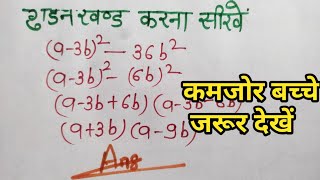 गुणनखण्ड करना सीखें
(a-3b)² - 36b²
(a-3b)² - (6b)²
(a-3b+6b) (a-3b-6b)
(a+3b) (a-9b)
Ans
कमजोर बच्चे
जरूर देखें